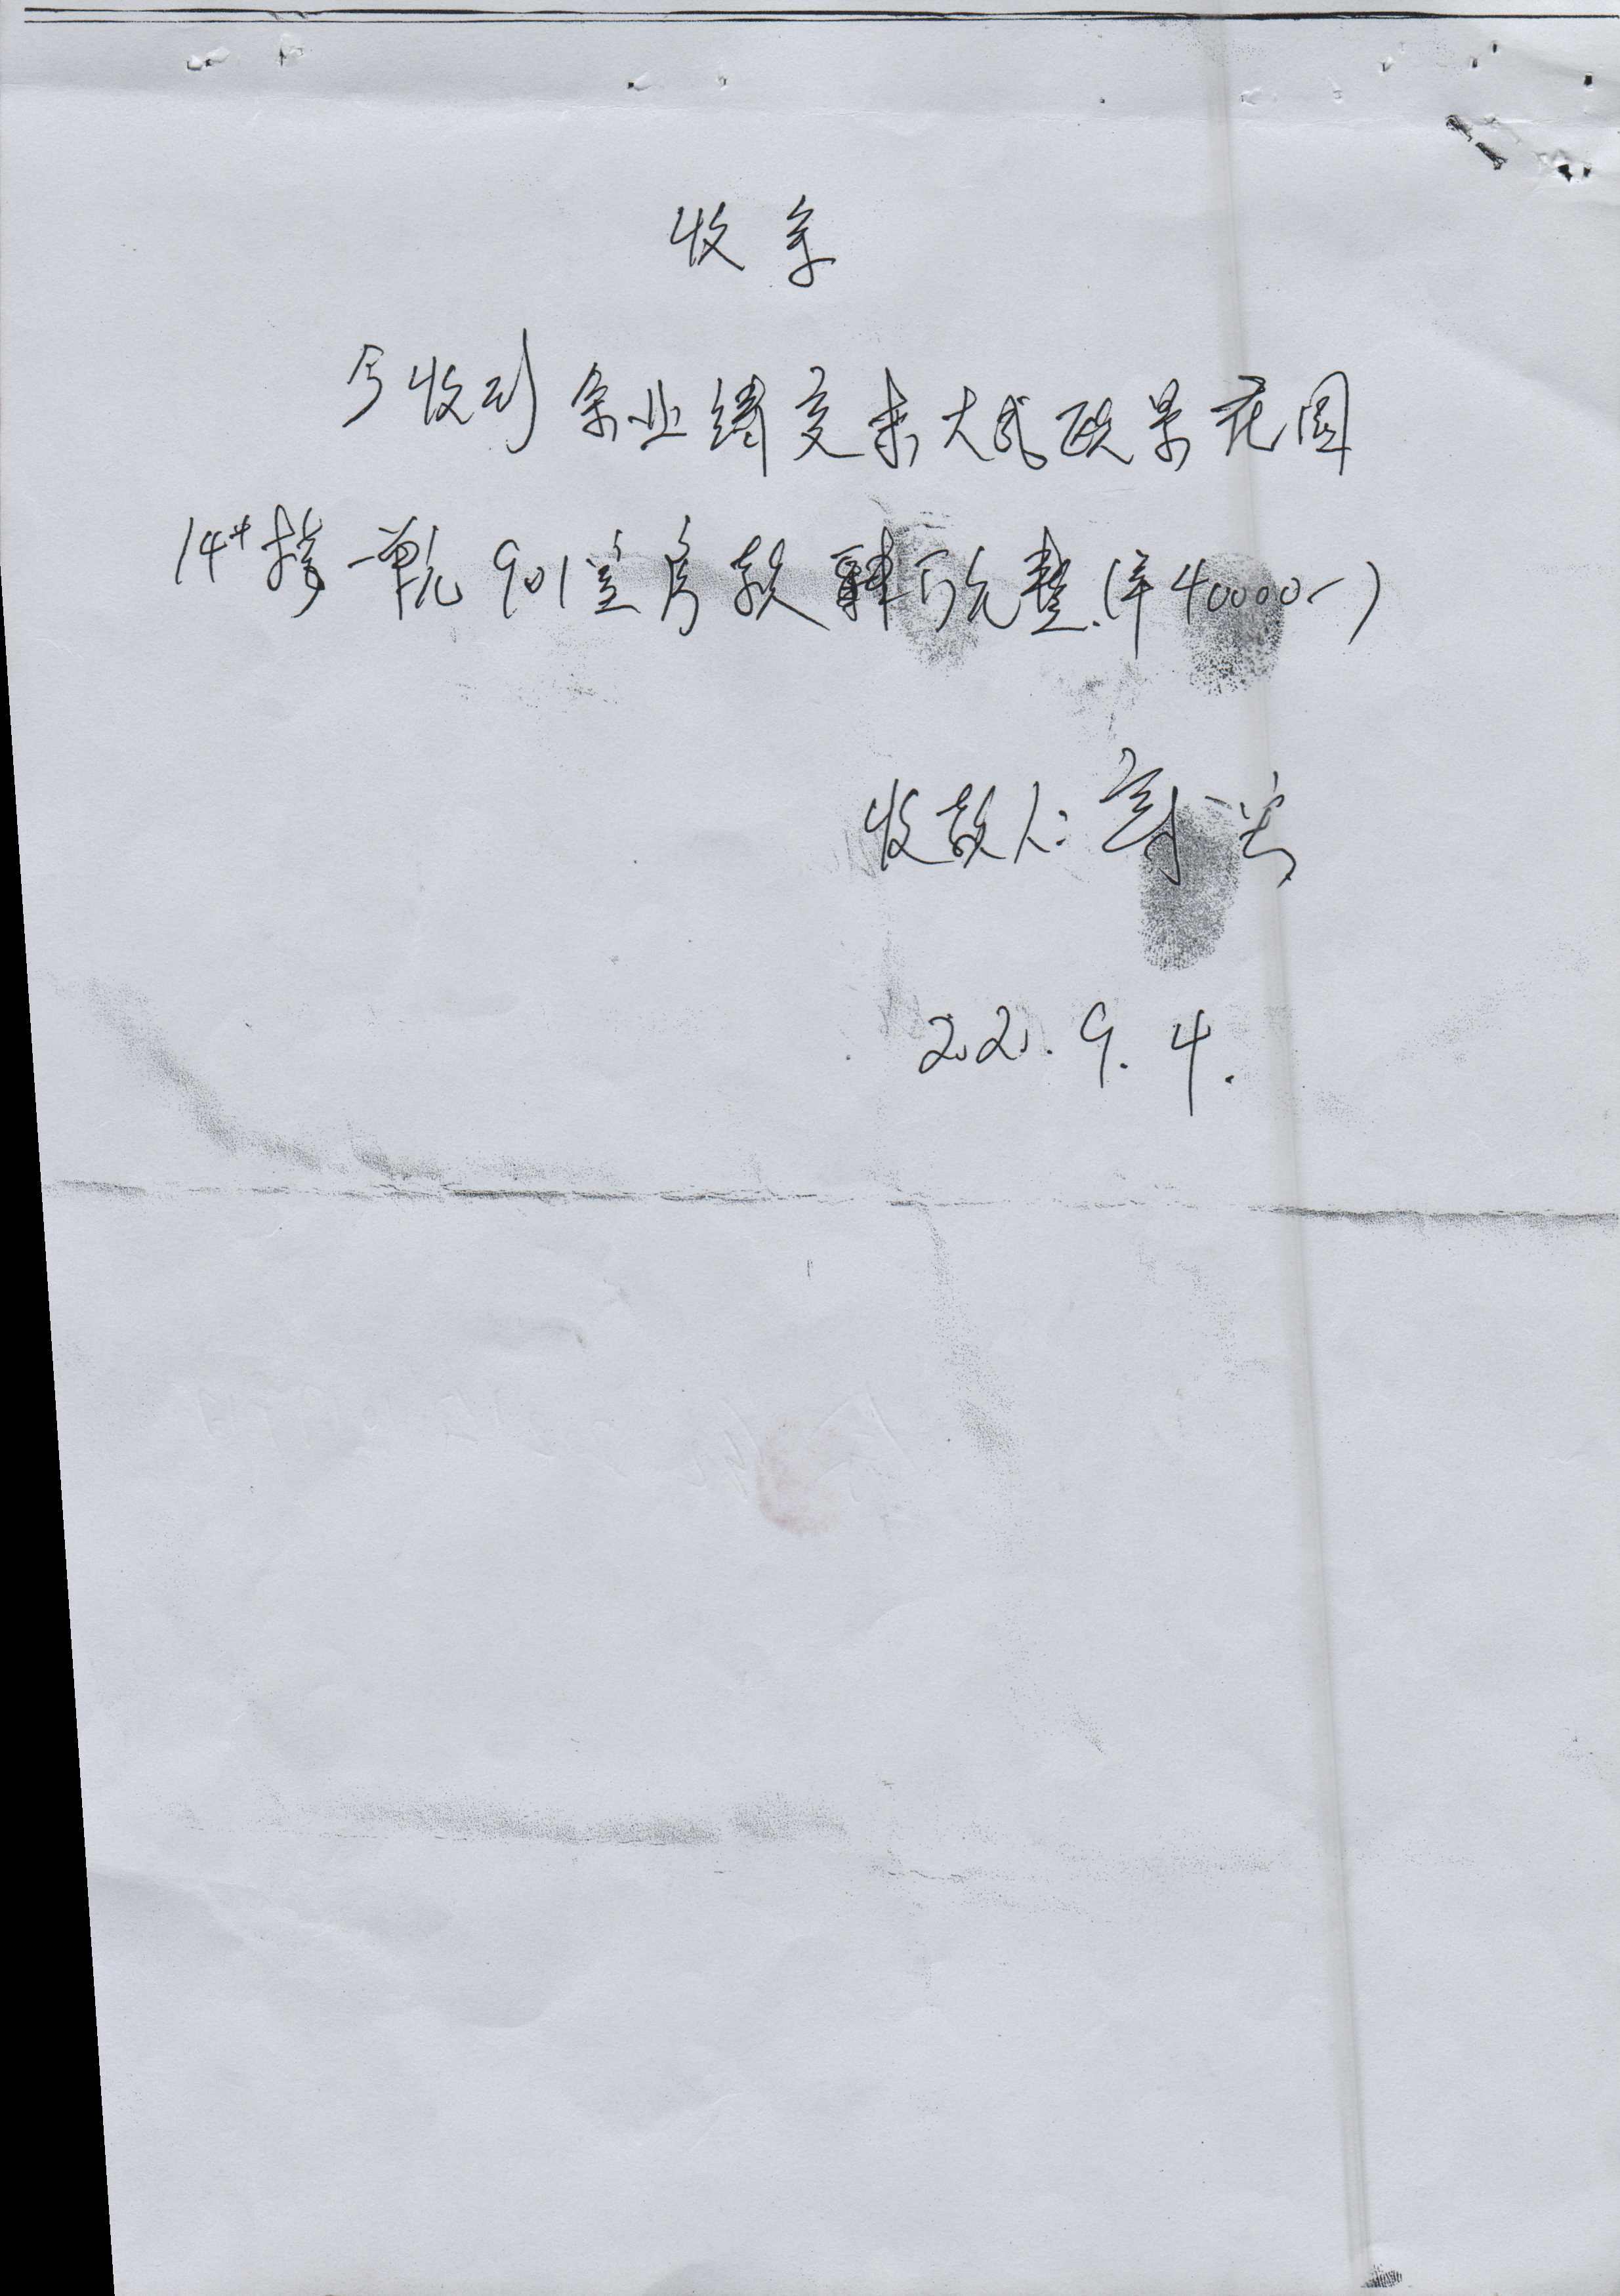 收条
今收到余业绪交来大武欧景花园
14#楼一单元901室房款肆万元整.(¥40000-)
收款人:
2021.9.4.